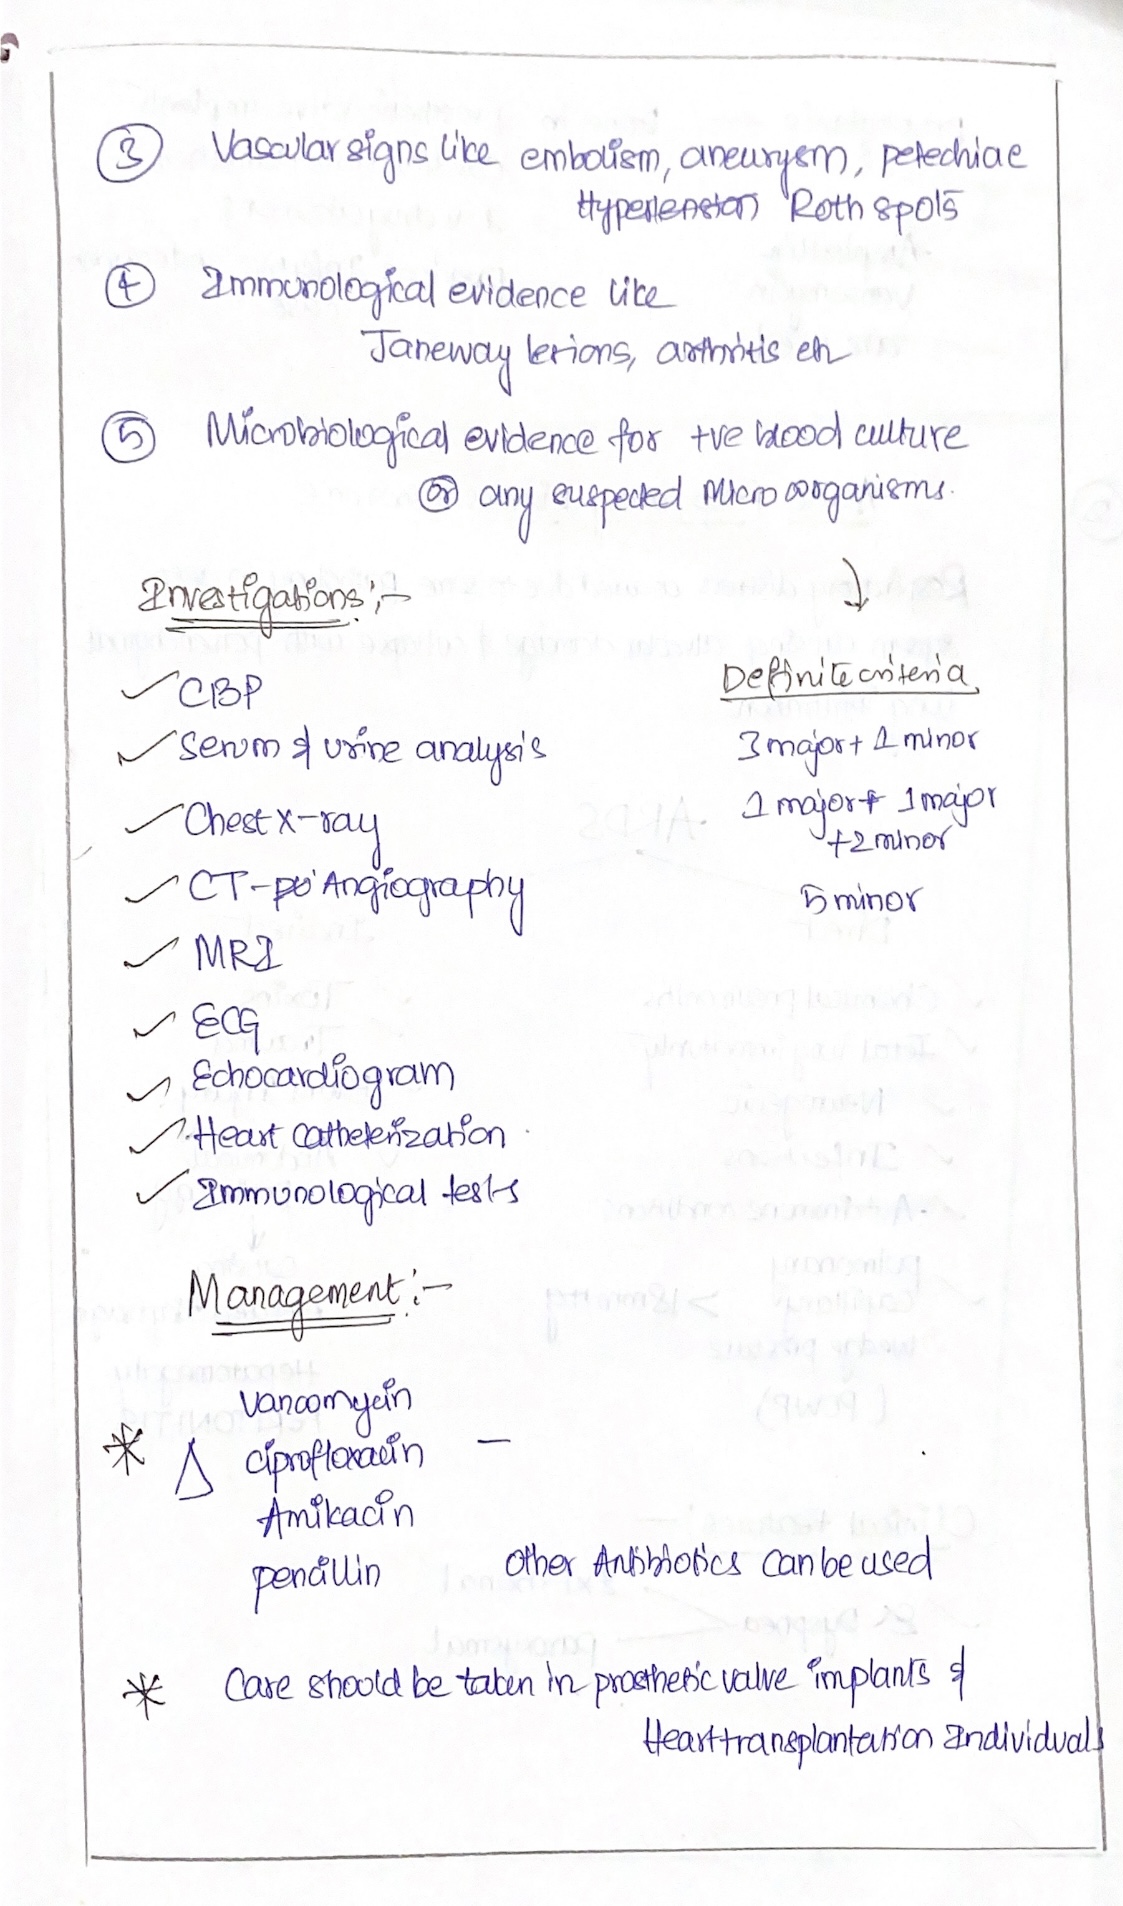 ③ Vascular signs like embolism, aneurysm, petechiae
Hypertension Roth spots
④ Immunological evidence like
Janeway lesions, arthritis etc
⑤ Microbiological evidence for +ve blood culture
or any suspected Micro oorganisms.
Investigations:-
✓ CBP
✓ Serum & urine analysis
✓ Chest X-ray
✓ CT- Angiography
✓ MRI
✓ ECG
✓ Echocardiogram
✓ Heart catheterization
✓ Immunological tests
↓
Definite criteria
3 major + 1 minor
1 major + 1 major
+2 minor
5 minor
Management:-
* Δ Vancomycin
ciprofloxacin –
Amikacin
pencillin
Other Antibiotics can be used
* Care should be taken in prosthetic valve implants &
Heart transplantation Individuals